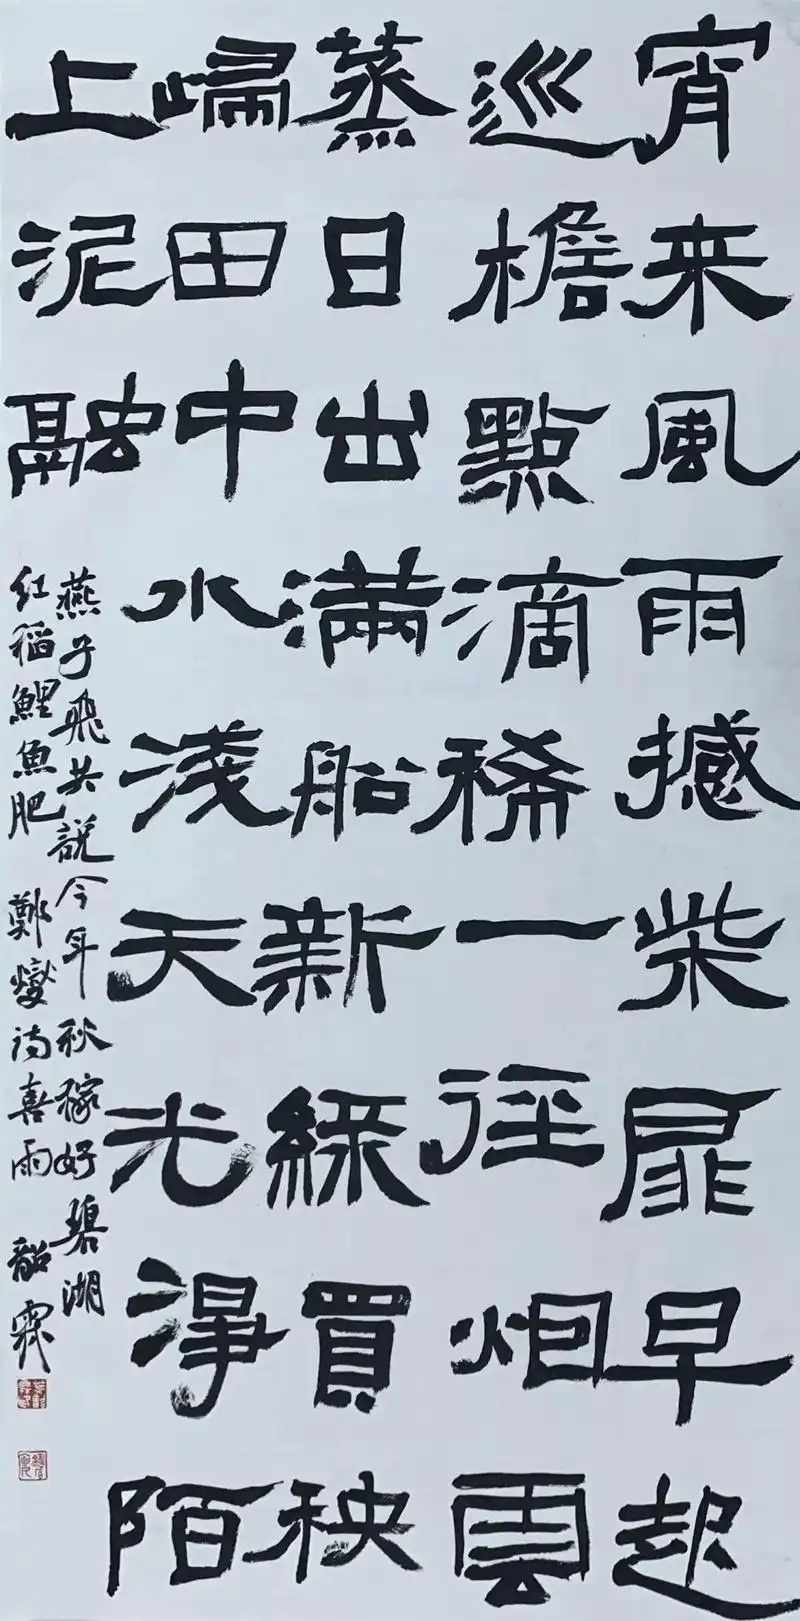 宵来風雨撼柴扉早起
巡檐點滴稀一徑烟雲
蒸日出滿船新綠買秧
歸田中水淺天光淨陌
上泥融
燕子飛共説今年秋稼好碧湖
紅稻鯉魚肥 鄭燮詩喜雨 韶霖